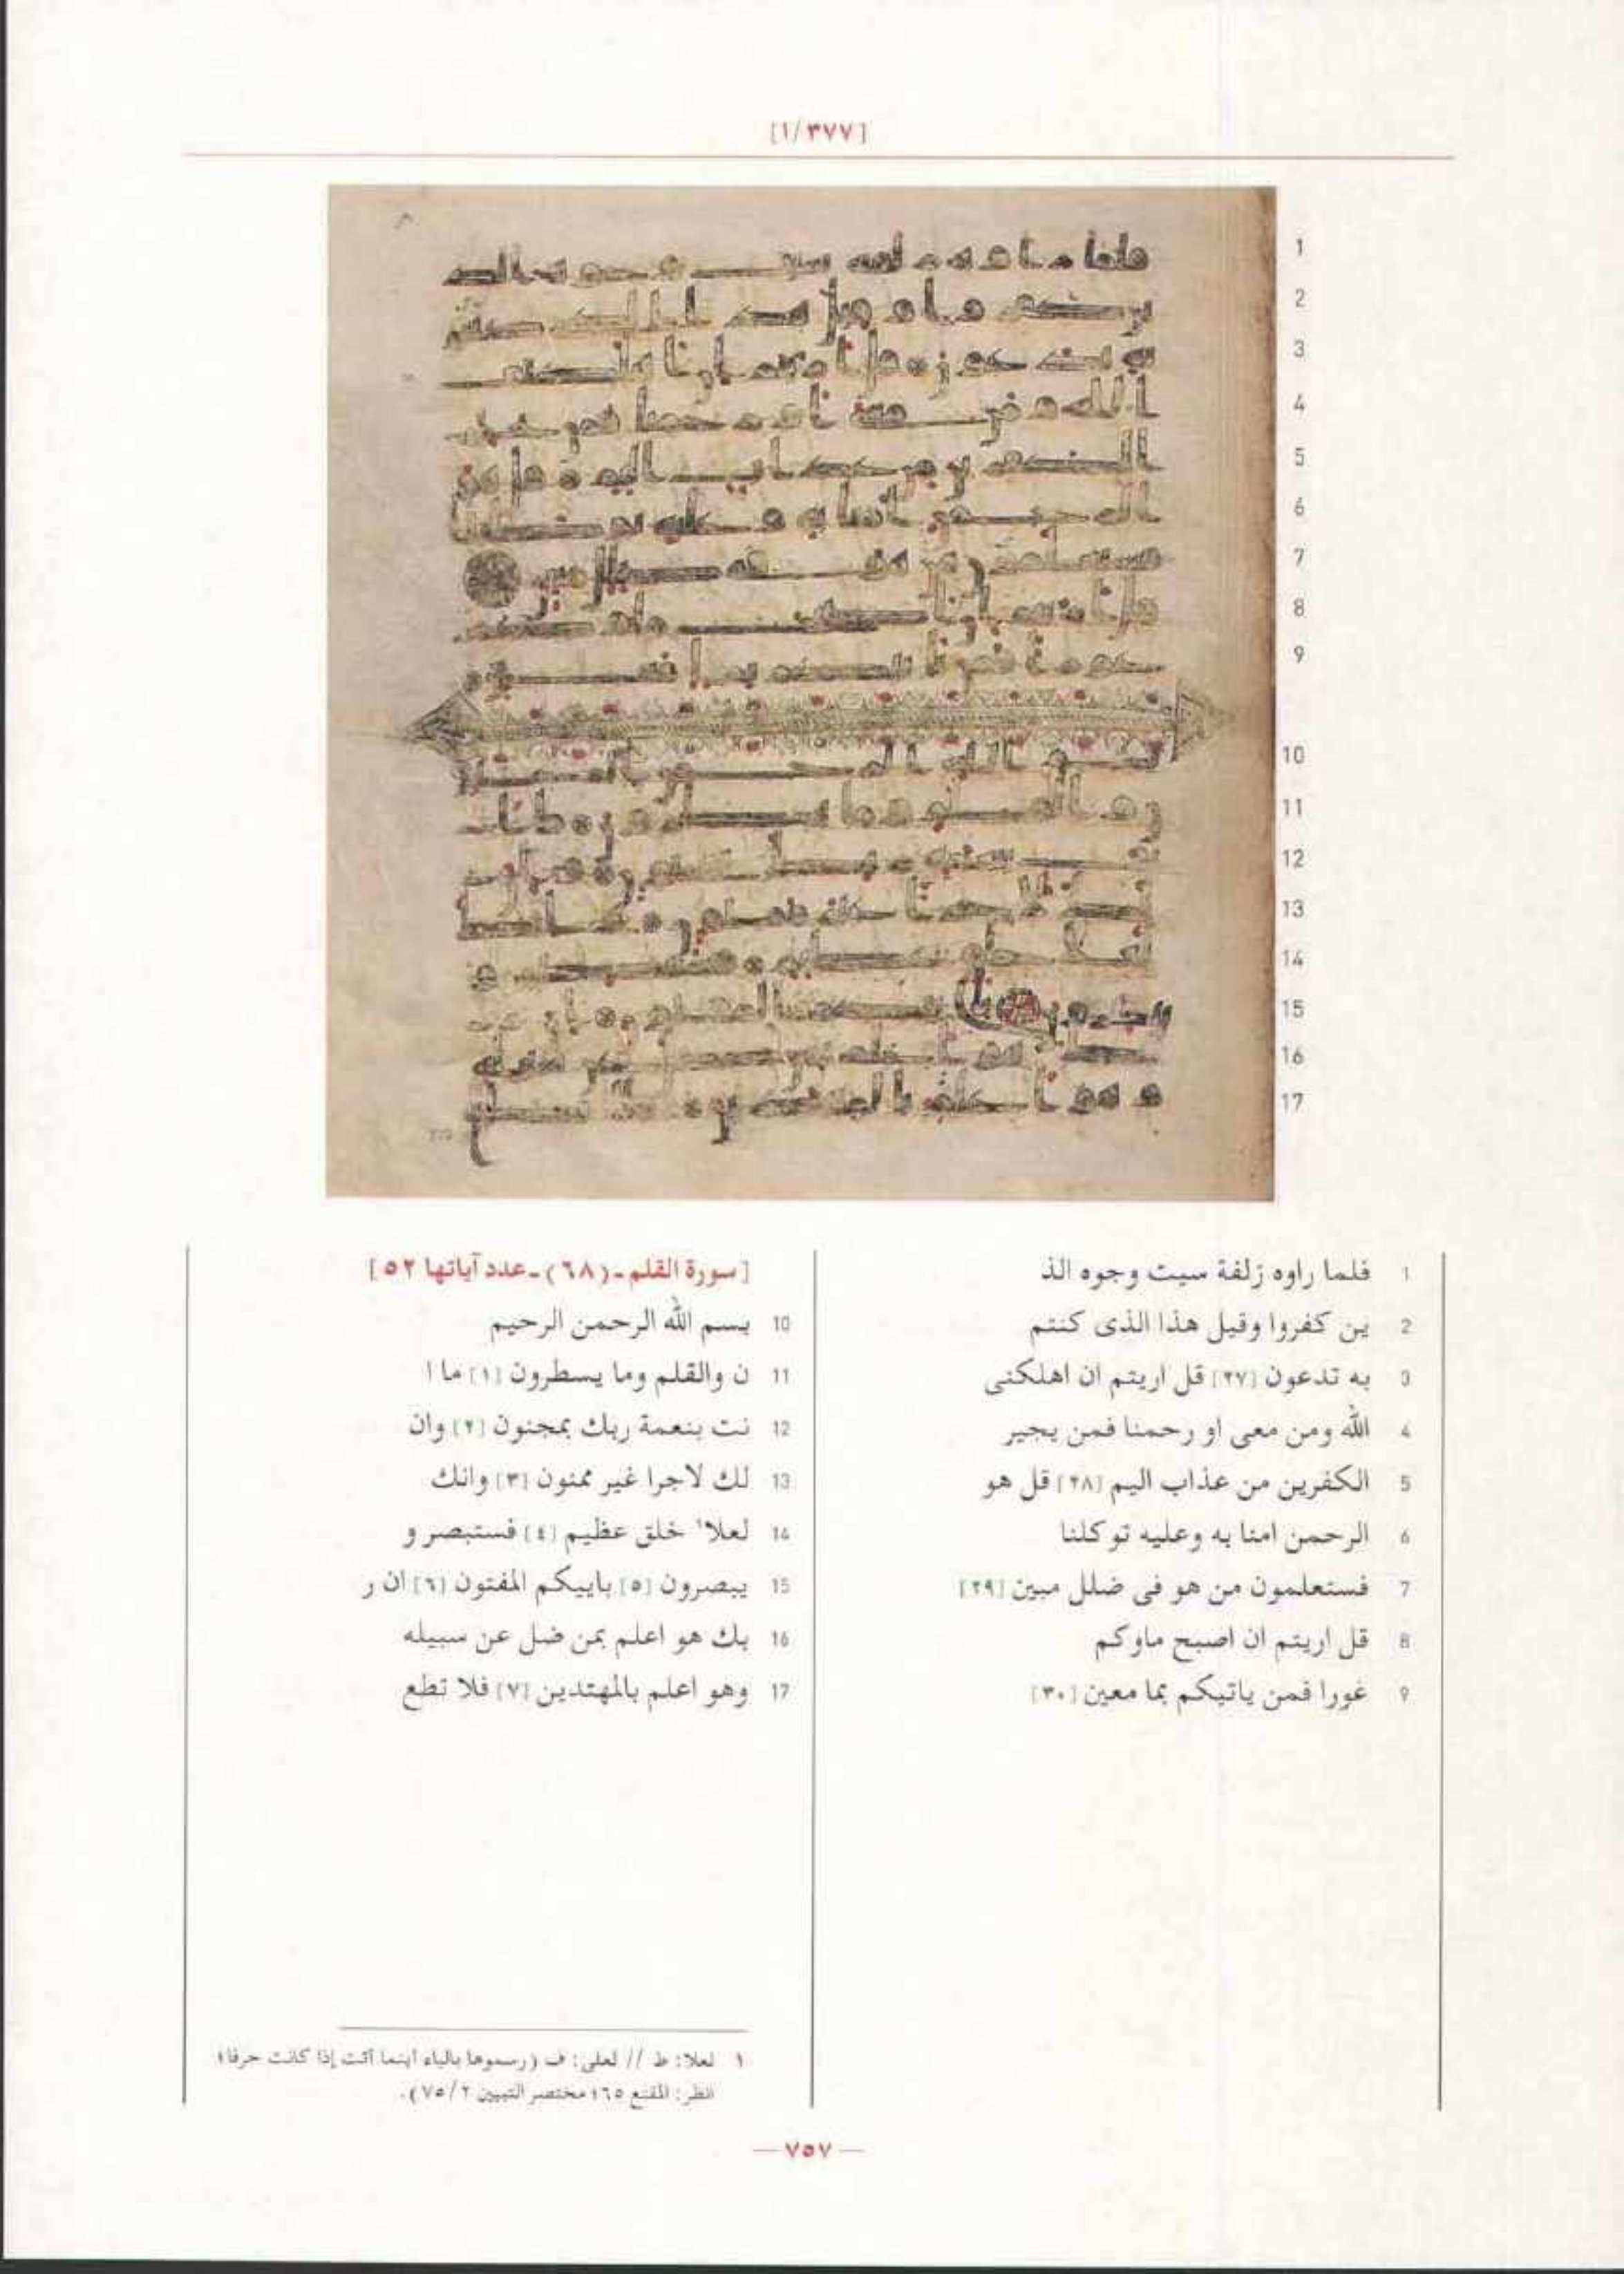 [١/٣٧٧]
1 فلما راوه زلفة سيت وجوه الذ
2 ين كفروا وقيل هذا الذى كنتم
3 به تدعون [٢٧] قل اريتم ان اهلكنى
4 الله ومن معى او رحمنا فمن يجير
5 الكفرين من عذاب اليم [٢٨] قل هو
6 الرحمن امنا به وعليه توكلنا
7 فستعلمون من هو فى ضلل مبين [٢٩]
8 قل اريتم ان اصبح ماوكم
9 غورا فمن ياتيكم بما معين [٣٠]
[سورة القلم ـ (٦٨) ـ عدد آياتها ٥٢]
10 بسم الله الرحمن الرحيم
11 ن والقلم وما يسطرون [١] ما ا
12 نت بنعمة ربك بمجنون [٢] وان
13 لك لاجرا غير ممنون [٣] وانك
14 لعلا١ خلق عظيم [٤] فستبصر و
15 يبصرون [٥] باييكم المفتون [٦] ان ر
16 بك هو اعلم بمن ضل عن سبيله
17 وهو اعلم بالمهتدين [٧] فلا تطع
١ لعلا: ط // لعلى: ف (رسموها بالياء اينما أتت إذا كانت حرفا؛
انظر: المقنع ٦٥؛ مختصر التبيين ٢/ ٧٥).
— ٧٥٧ —